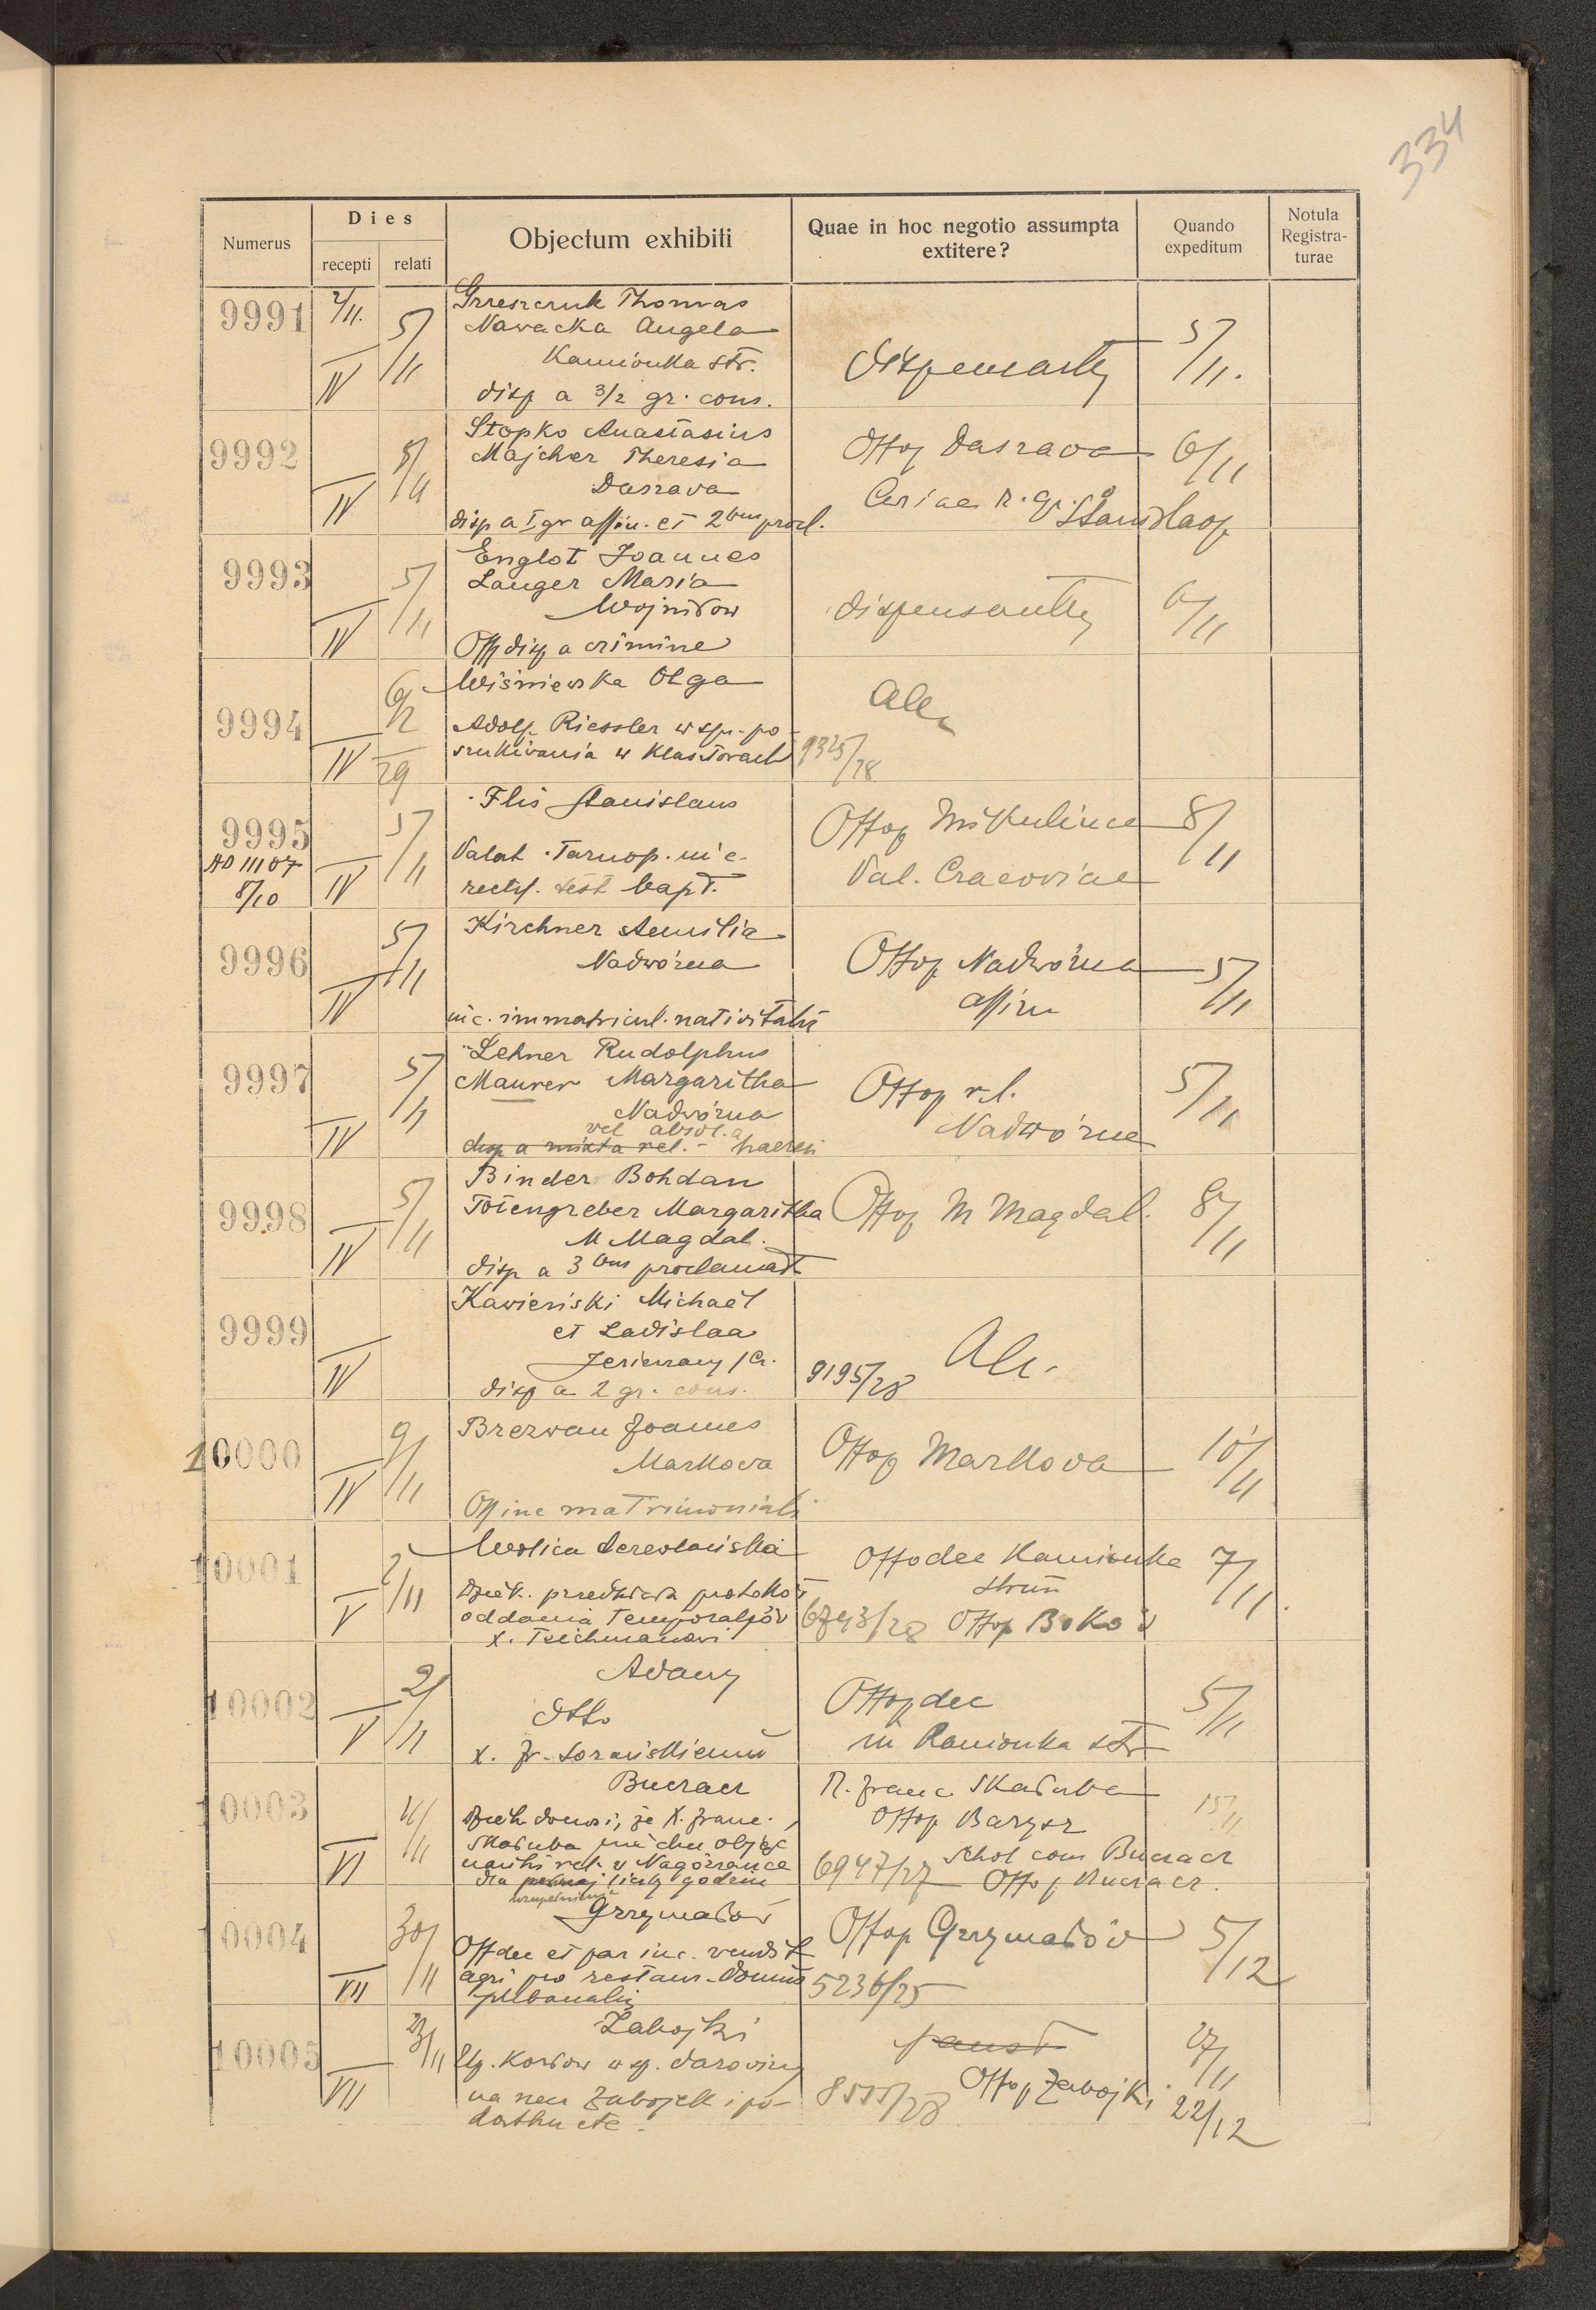 334
Numerus
Dies
recepti
relati
Objectum exhibiti
Quae in hoc negotio assumpta
extitere?
Quando
expeditum
Notula
Registra-
turae
9991
2/11.
IV
5/11
Grzeszczuk Thomas
Nawacka Angela
Kamionka str.
disp a 3/2 gr. cons.
5/11.
9992
IV
5/11
Stopko Anastasius
Majcher Theresia
Daszava
disp a I gr affin. et 2bus procl.
Offop Daszava
Stanislaop
6/11
9993
IV
5/11
Englot Joannes
Langer Maria
Wojniłow
Off disp a crimine
dispensantly
6/11
9994
IV
6/2
29
Wiśniewska Olga
Adolf Riessler w spr. po-
szukiwania w klasztorach
9325/28
9995
AD 11107
8/10
IV
5/11
Flis Stanislaus
Valat. Tarnop. in c.
rectif. test bapt.
Offop Mikulince
Val. Cracoviae
8/11
9996
IV
5/11
Kirchner Aemilia
Nadwórna
inc. immatricul. nativitatis
Offop Nadwórna
affirm
5/11
9997
IV
5/11
Lehner Rudolphus
Maurer Margaritha
Nadwórna
vel absol. a
disp a mixta rel. - haeresi
Offop r.l.
Nadwórna
5/11
9998
IV
5/11
Binder Bohdan
Totengreber Margaritha
M Magdal.
disp a 3bus proclamat
Offop M Magdal.
8/11
9999
IV
Kawiński Michaël
et Ladislaa
Jezierzany / Cz.
disp a 2 gr. cons.
9195/28
10000
IV
9/11
Brezwan Joannes
Markova
Off inc matrimonialis
Offop Markova
10/11
10001
V
2/11
Wolica Derewlańska
Dziek. przedkłada protokół
oddania temporaljów
x. Tschmanowi
Offodec Kamionka
strum
6743/28 Offop
7/11.
10002
V
2/11
Adamy
dtto
Offopdec
in Kamionka str
5/11
10003
VI
Buczacz
Dziek donosi, że X. Franc.
Skałuba nie chce objąć
nauki rel. w Nagórzance
dla pełnej liczby godzin
uzupełnienia
R. Franc Skałuba
Offop Barysz
Schol com Buczacz
6947/27 Offop Buczacz.
15/11
10004
VII
30/11
Grzymałów
Offdec et par inc. vendit
agri pro restaur. domus
plebanalis
Offop Grzymałów
5236/25
5/12
10005
VII
23/11
Zabojki
Up. Korłow w sp. darowizny
na rzecz Zabojek i po-
datku etc.
Offop Zabojki
8555/28
27/11
22/12